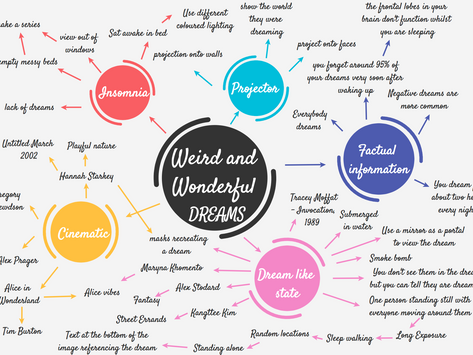 show the world
they were
dreaming
the frontal lobes in your
brain don't function whilst
you are sleeping
Use different
coloured lighting
ake a series
view out of
windows
Sat awake in bed
projection onto walls
project onto faces
empty messy beds
Insomnia
Projector
you forget around 95% of
your dreams very soon after
waking up
Negative dreams are
more common
lack of dreams
Everybody
dreams
Untitled March
2002
Playful nature
Weird and
Wonderful
DREAMS
Factual
information
Hannah Starkey
You dream
about two ho
every nigh
regory
ewdson
Tracey Moffat
- Invocation,
1989
Submerged
in water
Cinematic
masks recreating
a dream
Use a mirror as a portal
to view the dream
Alex Prager
Maryna Khomento
Dream like
state
Smoke bomb
You don't see them in the drea
but you can tell they are dream
Alice in
Wonderland
Alice vibes
Alex Stodard
Fantasy
Kangtee Kim
One person standing still with
everyone moving around them
Street Errands
Tim Burton
Text at the bottom of the
image referencing the dream
Random locations
Sleep walking
Long Exposure
Standing alone